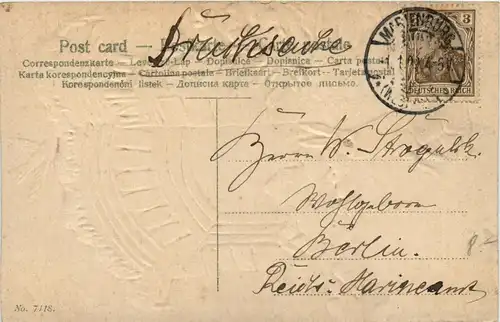 Drucksache
Post card
Correspondenzkarte — Levelező-Lap — Dopisnica — Dopisnice — Carta postala
Karta korespondencyjna — Cartolina postale — Briefkaart — Brefkort — Tarjeta postal
Korespondenční listek — Дописна карта — Открытое письмо.
MARIENBURG
3
DEUTSCHES REICH
Herrn W.
Wohlgeboren
Berlin.
Reichs-Marineamt
No. 7118.